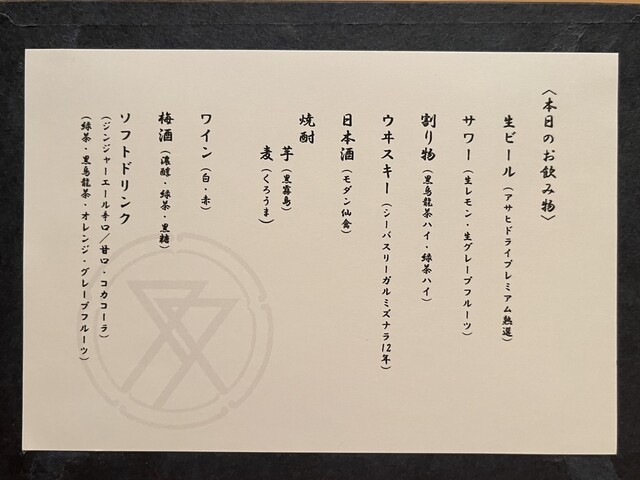 〈本日のお飲み物〉
生ビール（アサヒドライプレミアム熟選）
サワー（生レモン・生グレープフルーツ）
割り物（黒烏龍茶ハイ・緑茶ハイ）
ウヰスキー（シーバスリーガルミズナラ12年）
日本酒（モダン仙禽）
焼酎
芋（黒霧島）
麦（くろうま）
ワイン（白・赤）
梅酒（濃醇・緑茶・黒糖）
ソフトドリンク
（ジンジャーエール辛口／甘口・コカコーラ）
（緑茶・黒烏龍茶・オレンジ・グレープフルーツ）